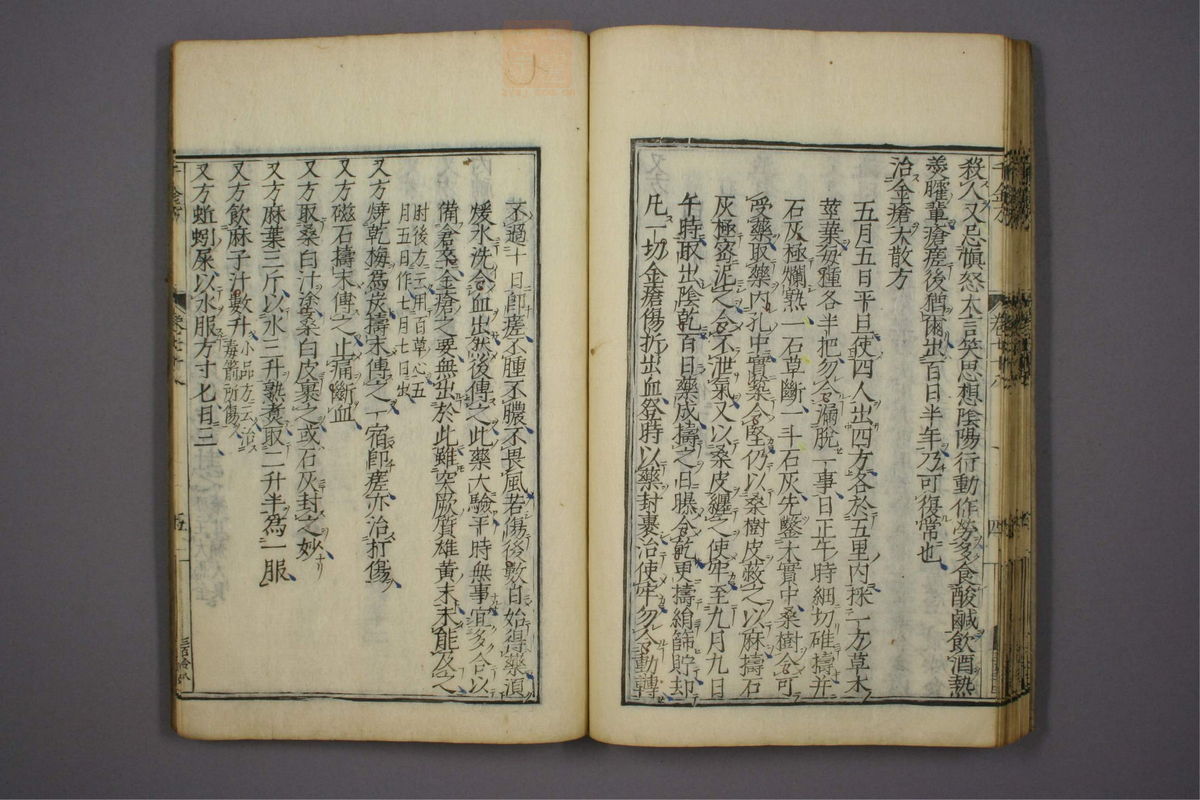 殺人又忌慎怒大言笑思想陰陽行動作勞多食酸鹹飲酒熱
羮臛輩瘡瘥後猶爾出百日半年乃可復常也
治金瘡大散方
五月五日平旦使四人出四方各於五里內採一方草木
莖葉每種各半把勿令漏脫一事日正午時細切碓擣并
石灰極爛熟一石草斷一斗石灰先鑿大實中桑樹令可
受藥取藥內孔中實築令堅仍以桑樹皮蔽之以麻擣石
灰極密泥之令不泄氣又以桑皮纏之使牢至九月九日
午時取出陰乾百日藥成擣之日曝令乾更擣絹篩貯却
凡一切金瘡傷折出血登時以藥封裹治使牢勿令動轉
不過十日即瘥不腫不膿不畏風若傷後數日始得藥須
煖水洗令血出然後傅之此藥大驗平時無事宜多合以
備倉卒金瘡之要無出於此雖突厥質雄黃末未能及之
肘後方云用百草心五
月五日作七月七日出
又方燒乾梅為炭擣末傅之一宿即瘥亦治打傷
又方磁石擣末傅之止痛斷血
又方取桑白汁塗桑白皮裹之或石灰封之妙
又方麻葉三斤以水三升熟煮取二升半為一服
又方飲麻子汁數升
小品方云治
毒箭所傷
又方蚯蚓屎以水服方寸匕日三